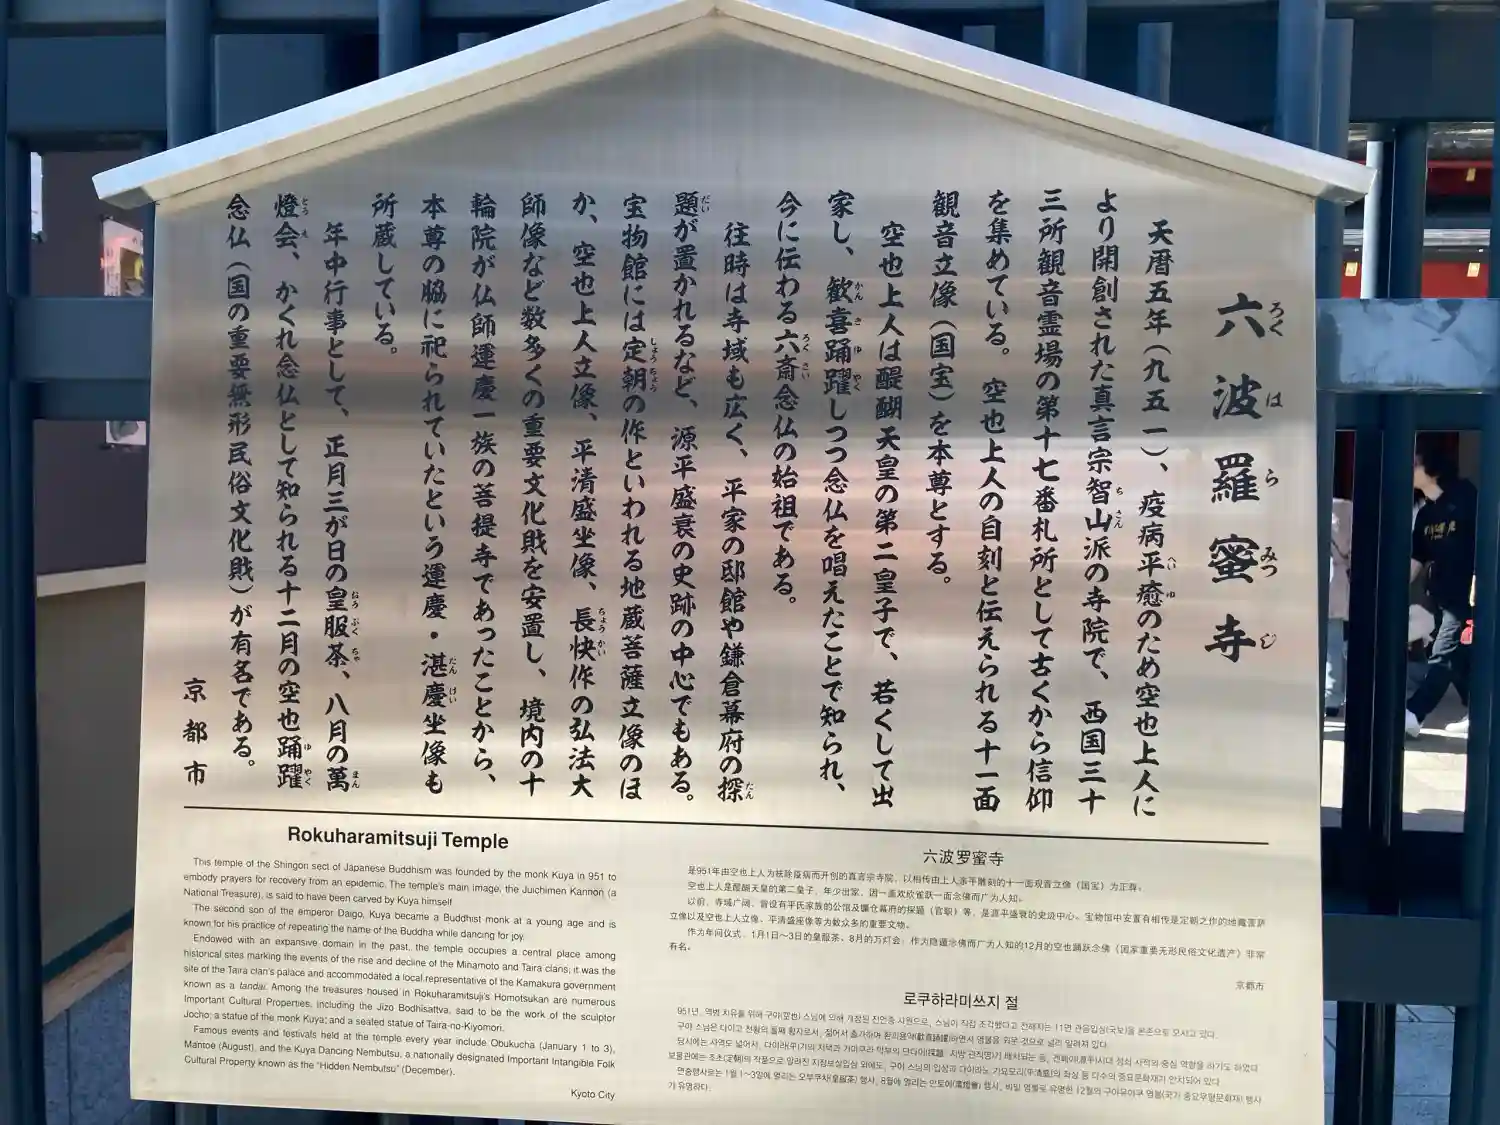 六波羅蜜寺
ろく は ら みつ じ
天暦五年（九五一）、疫病平癒のため空也上人に
より開創された真言宗智山派の寺院で、西国三十
三所観音霊場の第十七番札所として古くから信仰
を集めている。空也上人の自刻と伝えられる十一面
観音立像（国宝）を本尊とする。
空也上人は醍醐天皇の第二皇子で、若くして出
家し、歓喜踊躍しつつ念仏を唱えたことで知られ、
今に伝わる六斎念仏の始祖である。
往時は寺域も広く、平家の邸館や鎌倉幕府の探
題が置かれるなど、源平盛衰の史跡の中心でもある。
宝物館には定朝の作といわれる地蔵菩薩立像のほ
か、空也上人立像、平清盛坐像、長快作の弘法大
師像など数多くの重要文化財を安置し、境内の十
輪院が仏師運慶一族の菩提寺であったことから、
本尊の脇に祀られていたという運慶・湛慶坐像も
所蔵している。
年中行事として、正月三が日の皇服茶、八月の萬
燈会、かくれ念仏として知られる十二月の空也踊躍
念仏（国の重要無形民俗文化財）が有名である。
京都市
Rokuharamitsuji Temple
This temple of the Shingon sect of Japanese Buddhism was founded by the monk Kuya in 951 to
embody prayers for recovery from an epidemic. The temple's main image, the Juichimen Kannon (a
National Treasure), is said to have been carved by Kuya himself.
The second son of the emperor Daigo, Kuya became a Buddhist monk at a young age and is
known for his practice of repeating the name of the Buddha while dancing for joy.
Endowed with an expansive domain in the past, the temple occupies a central place among
historical sites marking the events of the rise and decline of the Minamoto and Taira clans; it was the
site of the Taira clan's palace and accommodated a local representative of the Kamakura government
known as a tandai. Among the treasures housed in Rokuharamitsuji's Homotsukan are numerous
Important Cultural Properties, including the Jizo Bodhisattva, said to be the work of the sculptor
Jocho; a statue of the monk Kuya; and a seated statue of Taira-no-Kiyomori.
Famous events and festivals held at the temple every year include Obukucha (January 1 to 3),
Mantoe (August), and the Kuya Dancing Nembutsu, a nationally designated Important Intangible Folk
Cultural Property known as the “Hidden Nembutsu” (December).
Kyoto City
六波罗蜜寺
是951年由空也上人为祛除疫病而开创的真言宗寺院，以相传由上人亲手雕刻的十一面观音立像（国宝）为正尊。
空也上人是醍醐天皇的第二皇子，年少出家，因一面欢欣雀跃一面念佛而广为人知。
以前，寺域广阔，曾设有平氏家族的公馆及镰仓幕府的探题（官职）等，是源平盛衰的史迹中心。宝物馆中安置有相传是定朝之作的地藏菩萨
立像以及空也上人立像、平清盛座像等为数众多的重要文物。
作为年间仪式，1月1日～3日的皇服茶、8月的万灯会、作为隐避念佛而广为人知的12月的空也踊跃念佛（国家重要无形民俗文化遗产）非常
有名。
京都市
로쿠하라미쓰지 절